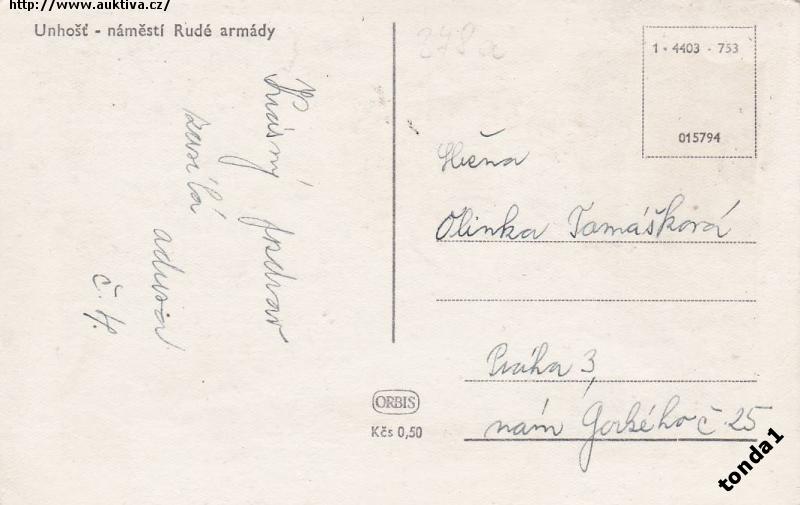 http://www.auktiva.cz/
Unhošť - náměstí Rudé armády
278a
1 - 4403 - 753
015794
Krásný pozdrav
zasílá
č. 4.
Slečna
Olinka Tomášková
Praha 3,
nám Gorkého č 25
ORBIS
Kčs 0,50
tonda1